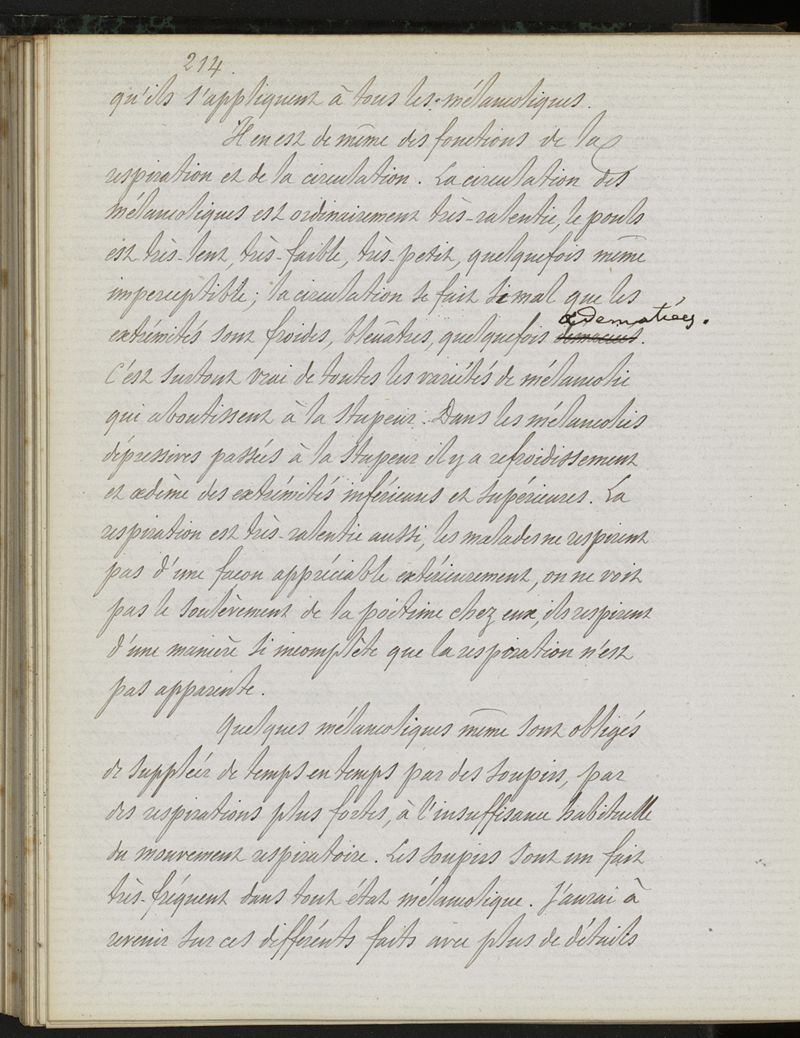 214
qu'ils s'appliquent à tous les mélancoliques.
Il en est de même des fonctions de la
respiration et de la circulation. La circulation des
mélancoliques est ordinairement très-ralentie, le pouls
est très-lent, très-faible, très-petit, quelquefois même
imperceptible; la circulation se fait si mal que les
œdematiées.
extrémités sont froides, bleuâtres, quelquefois
C'est surtout vrai de toutes les variétés de mélancolie
qui aboutissent à la stupeur. Dans les mélancolies
dépressives passées à la stupeur il y a refroidissement
et œdème des extrémités inférieures et supérieures. La
respiration est très-ralentie aussi, les malades ne respirent
pas d'une façon appréciable extérieurement, on ne voit
pas le soulèvement de la poitrine chez eux, ils respirent
d'une manière si incomplète que la respiration n'est
pas apparente.
Quelques mélancoliques même sont obligés
de suppléer de temps en temps par des soupirs, par
des respirations plus fortes, à l'insuffisance habituelle
du mouvement respiratoire. Les soupirs sont un fait
très-fréquent dans tout état mélancolique. J'aurai à
revenir sur ces différents faits avec plus de détails